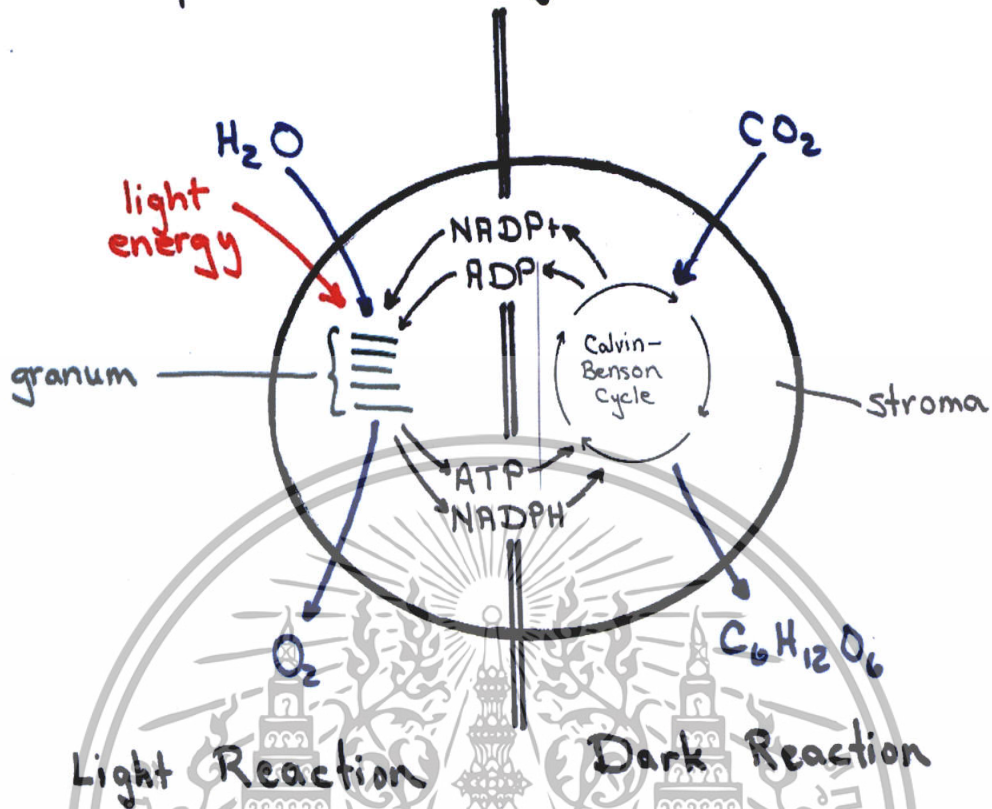 H₂O
CO₂
light
energy
NADP+
ADP
granum
Calvin-
Benson
Cycle
stroma
ATP
NADPH
O₂
C₆H₁₂O₆
Light Reaction
Dark Reaction